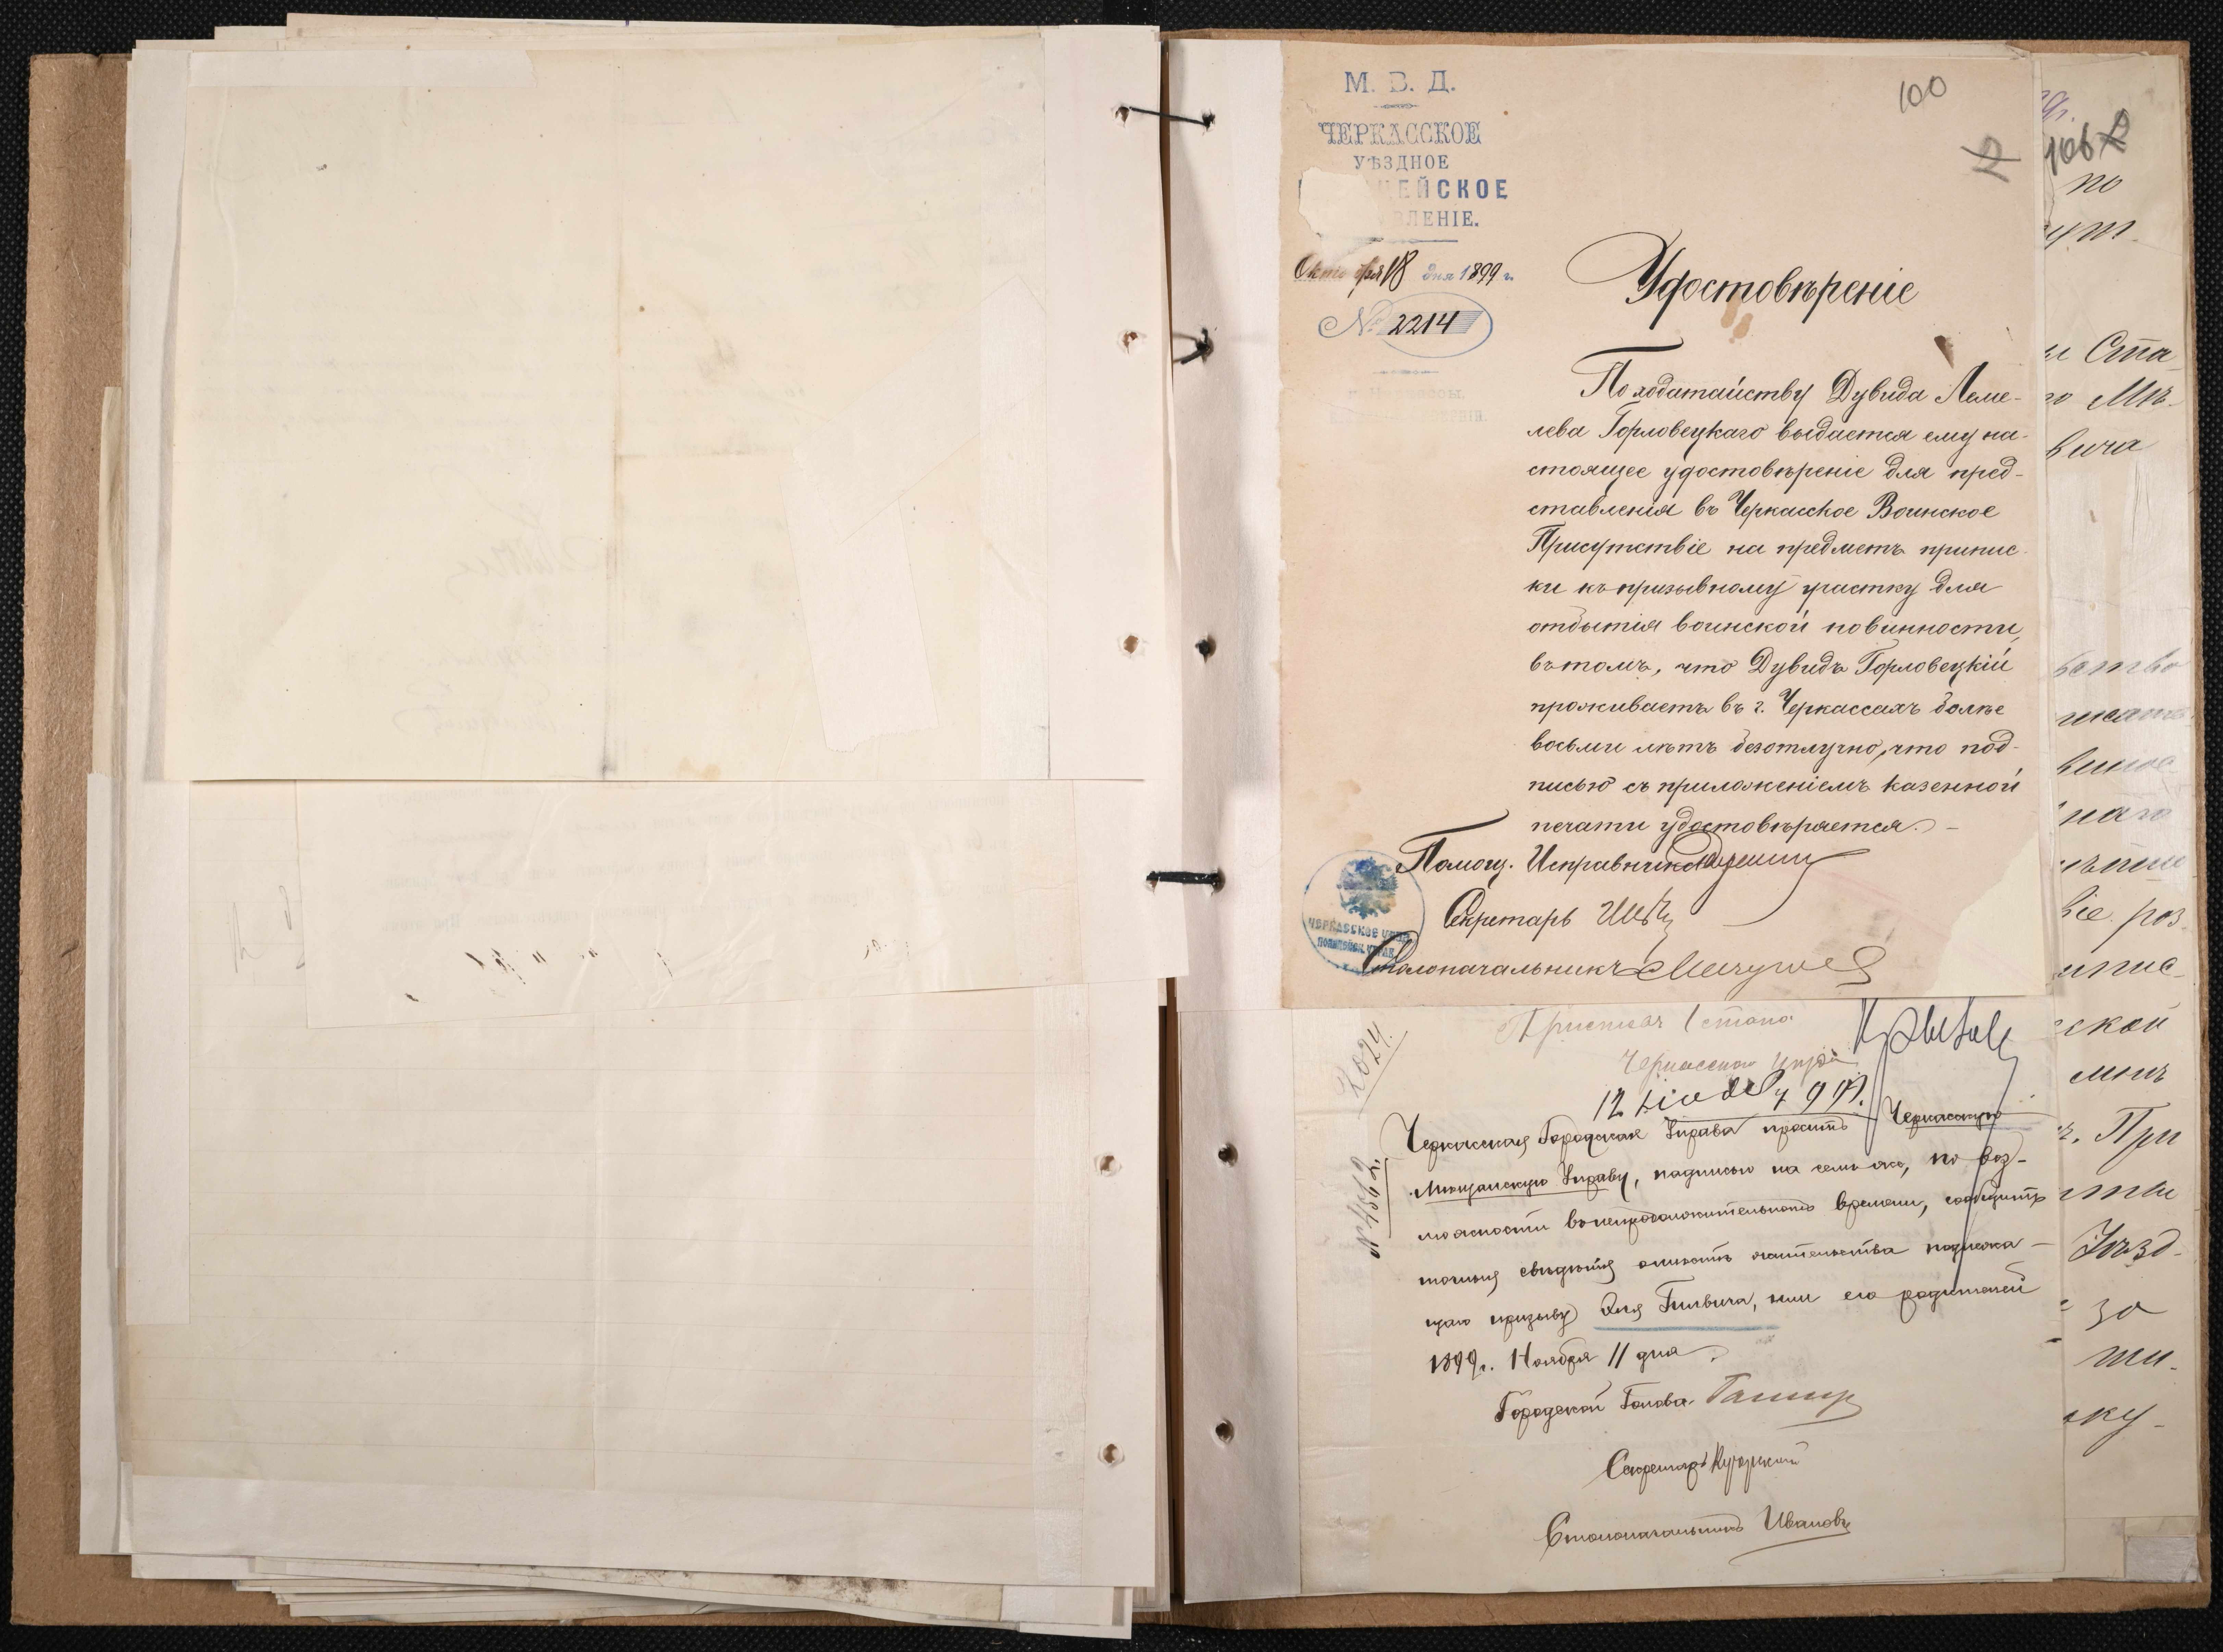 100
М. В. Д.
ЧЕРКАССКОЕ
УѢЗДНОЕ
ЦЕЙСКОЕ
ВЛЕНІЕ.
Октября 18 дня 1899 г.
№ 2214
Удостовѣреніе
По ходатайству Дувида Леме-
лева Горловецкаго выдается ему на-
стоящее удостовѣреніе для пред-
ставленія въ Черкасское Воинское
Присутствіе на предметъ припис-
ки къ призывному участку для
отбытія воинской повинности,
въ томъ, что Дувидъ Горловецкій
проживаетъ въ г. Черкассахъ болѣе
восьми лѣтъ безотлучно, что под-
писью съ приложеніемъ казенной
печати удостовѣряется. –
Помощ. Исправника
Секретарь
Столоначальникъ
ЧЕРКАССКОЕ УѢЗД.
ПОЛИЦЕЙСК. УПРАВ.
2024.
№ 4562.
Черкасская Городская Управа проситъ Черкасскую
Мѣщанскую Управу, надписью на семъ же, по воз-
можности въ непродолжительномъ времени, сообщить
точныя свѣдѣнія о мѣстѣ жительства подлежа-
щаго призыву, или его родителей
1899 г. Ноября 11 дня.
Городской Голова
Секретарь
Столоначальникъ Ивановъ
106
по
Ста
го Мѣ-
вича
наго
віе роз-
ипис-
ской
При
Уѣзд-
зо
ти-
ку-